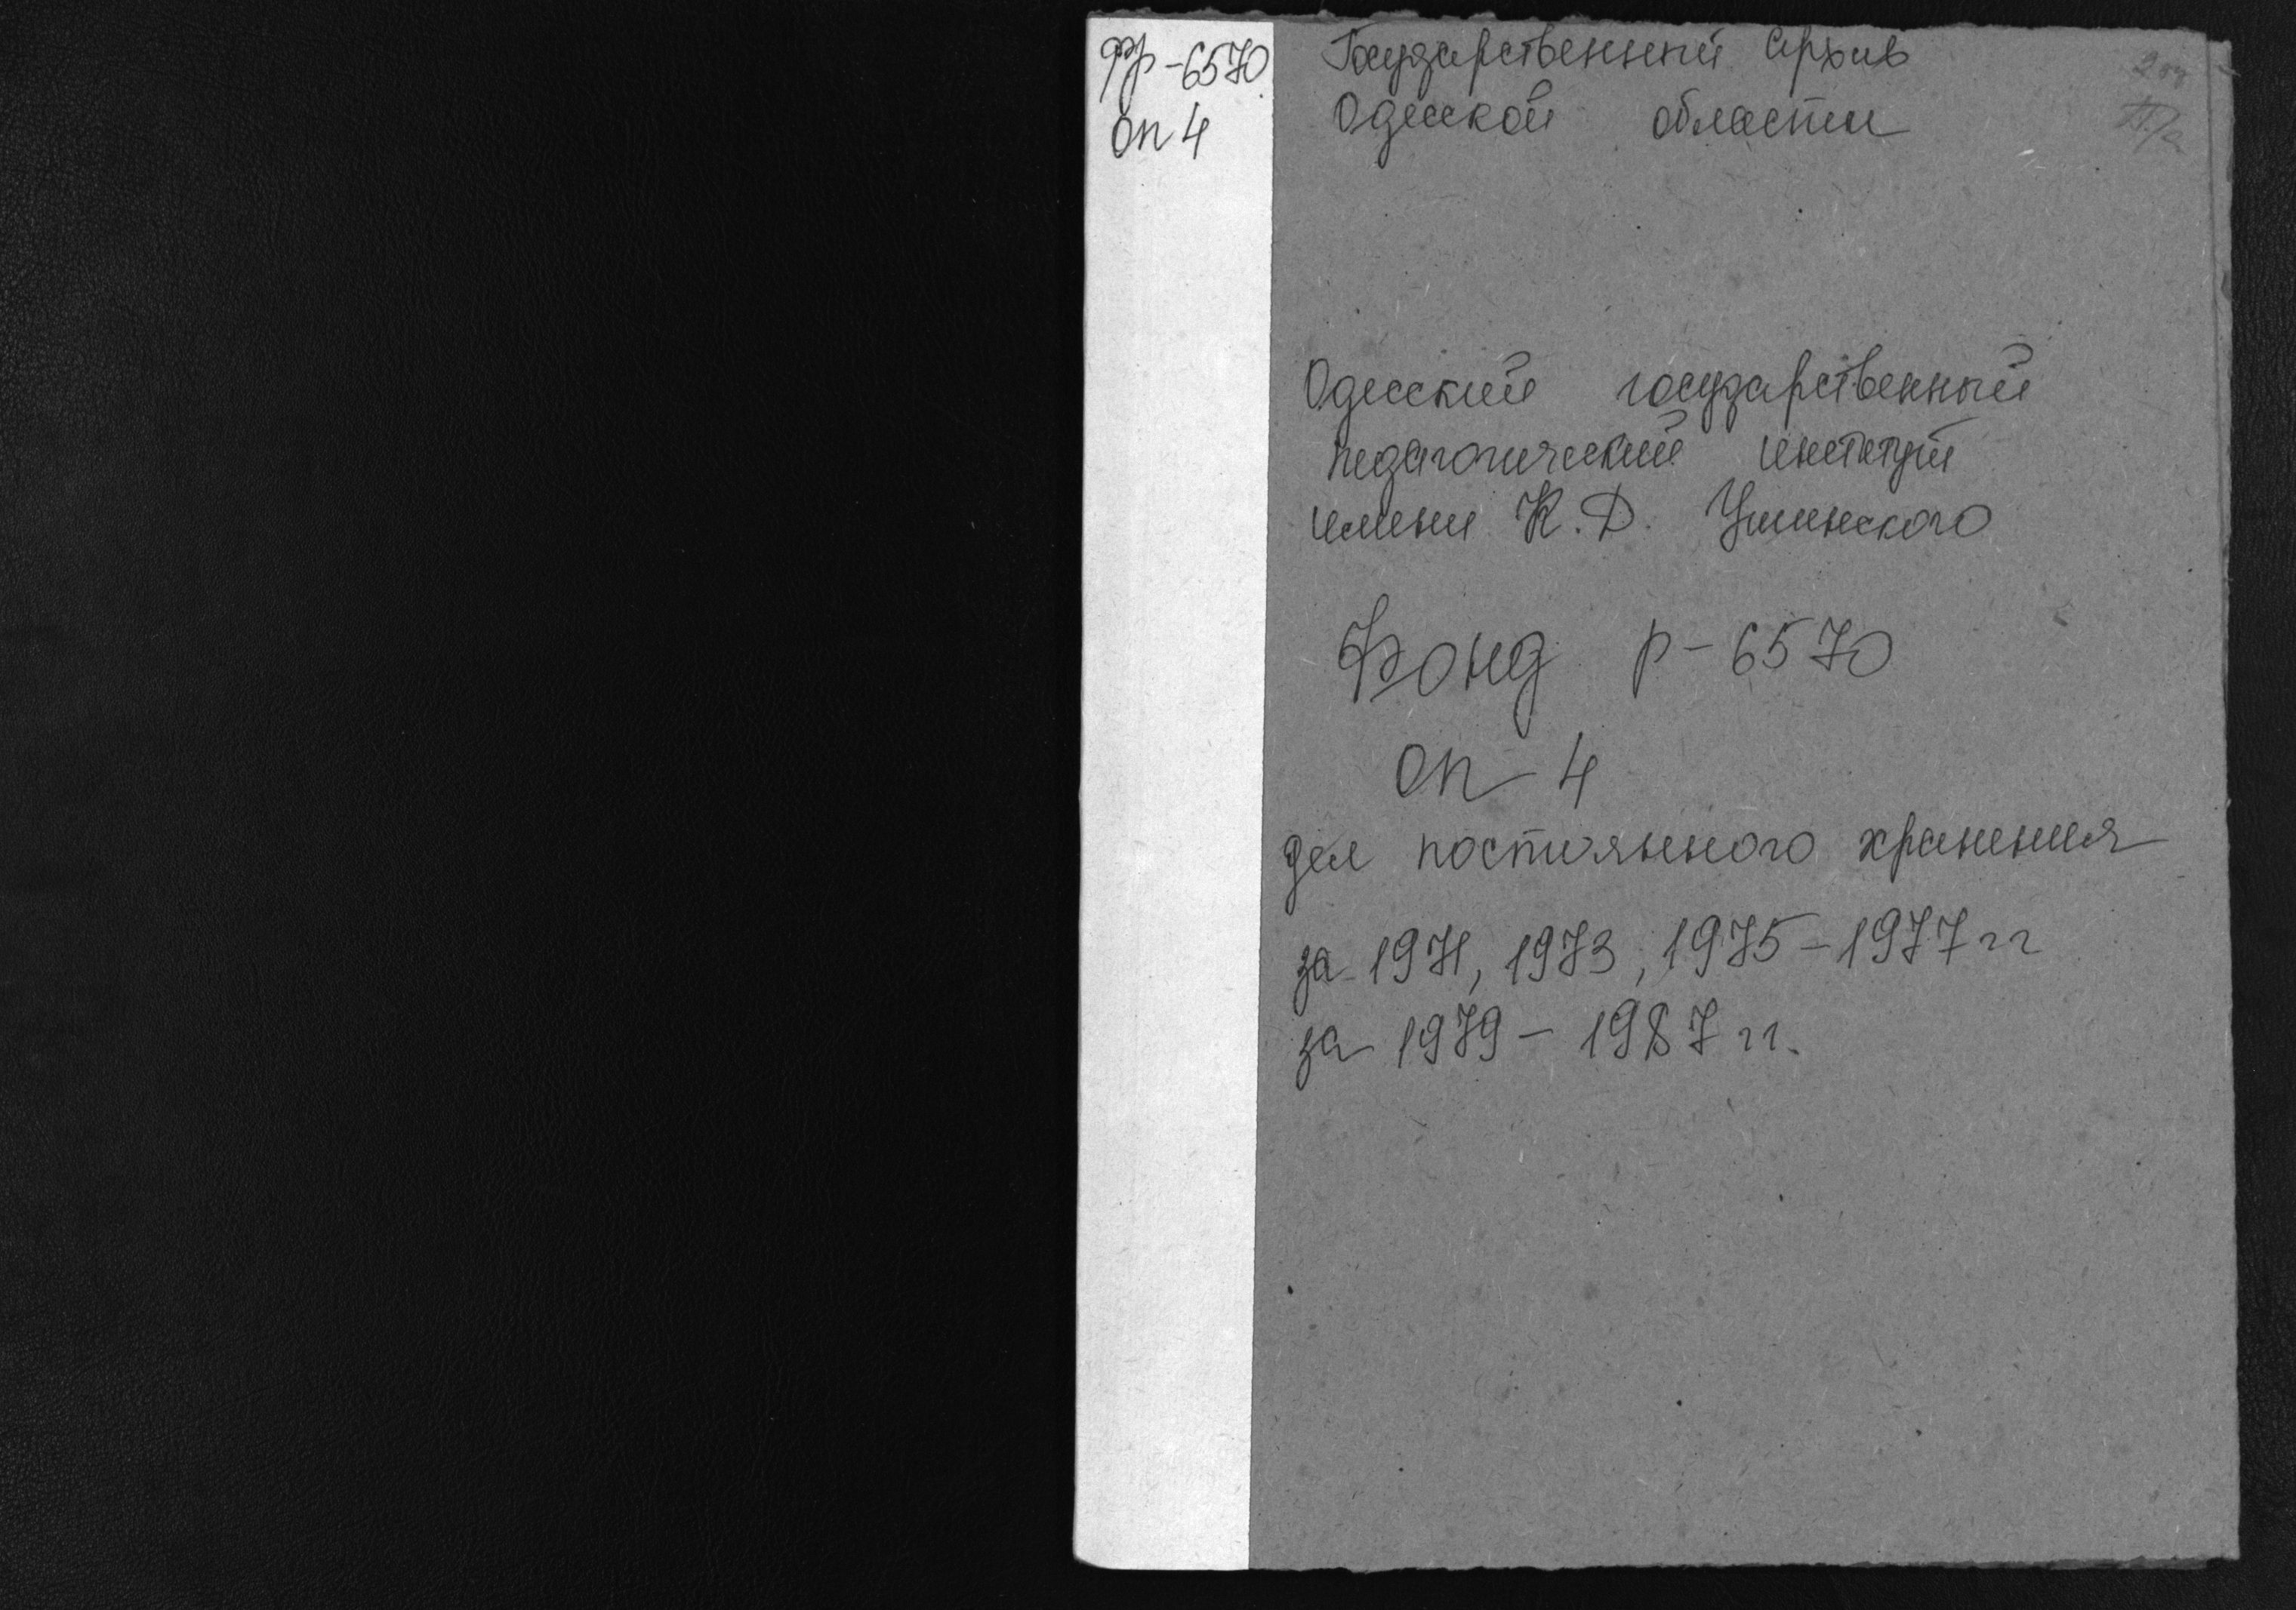 фр-6570
оп 4
Государственный архив
Одесской области
Одесский государственный
педагогический институт
имени К.Д. Ушинского
Фонд р-6570
оп 4
дел постоянного хранения
за 1971, 1973, 1975-1977 гг
за 1979 - 1987 гг.